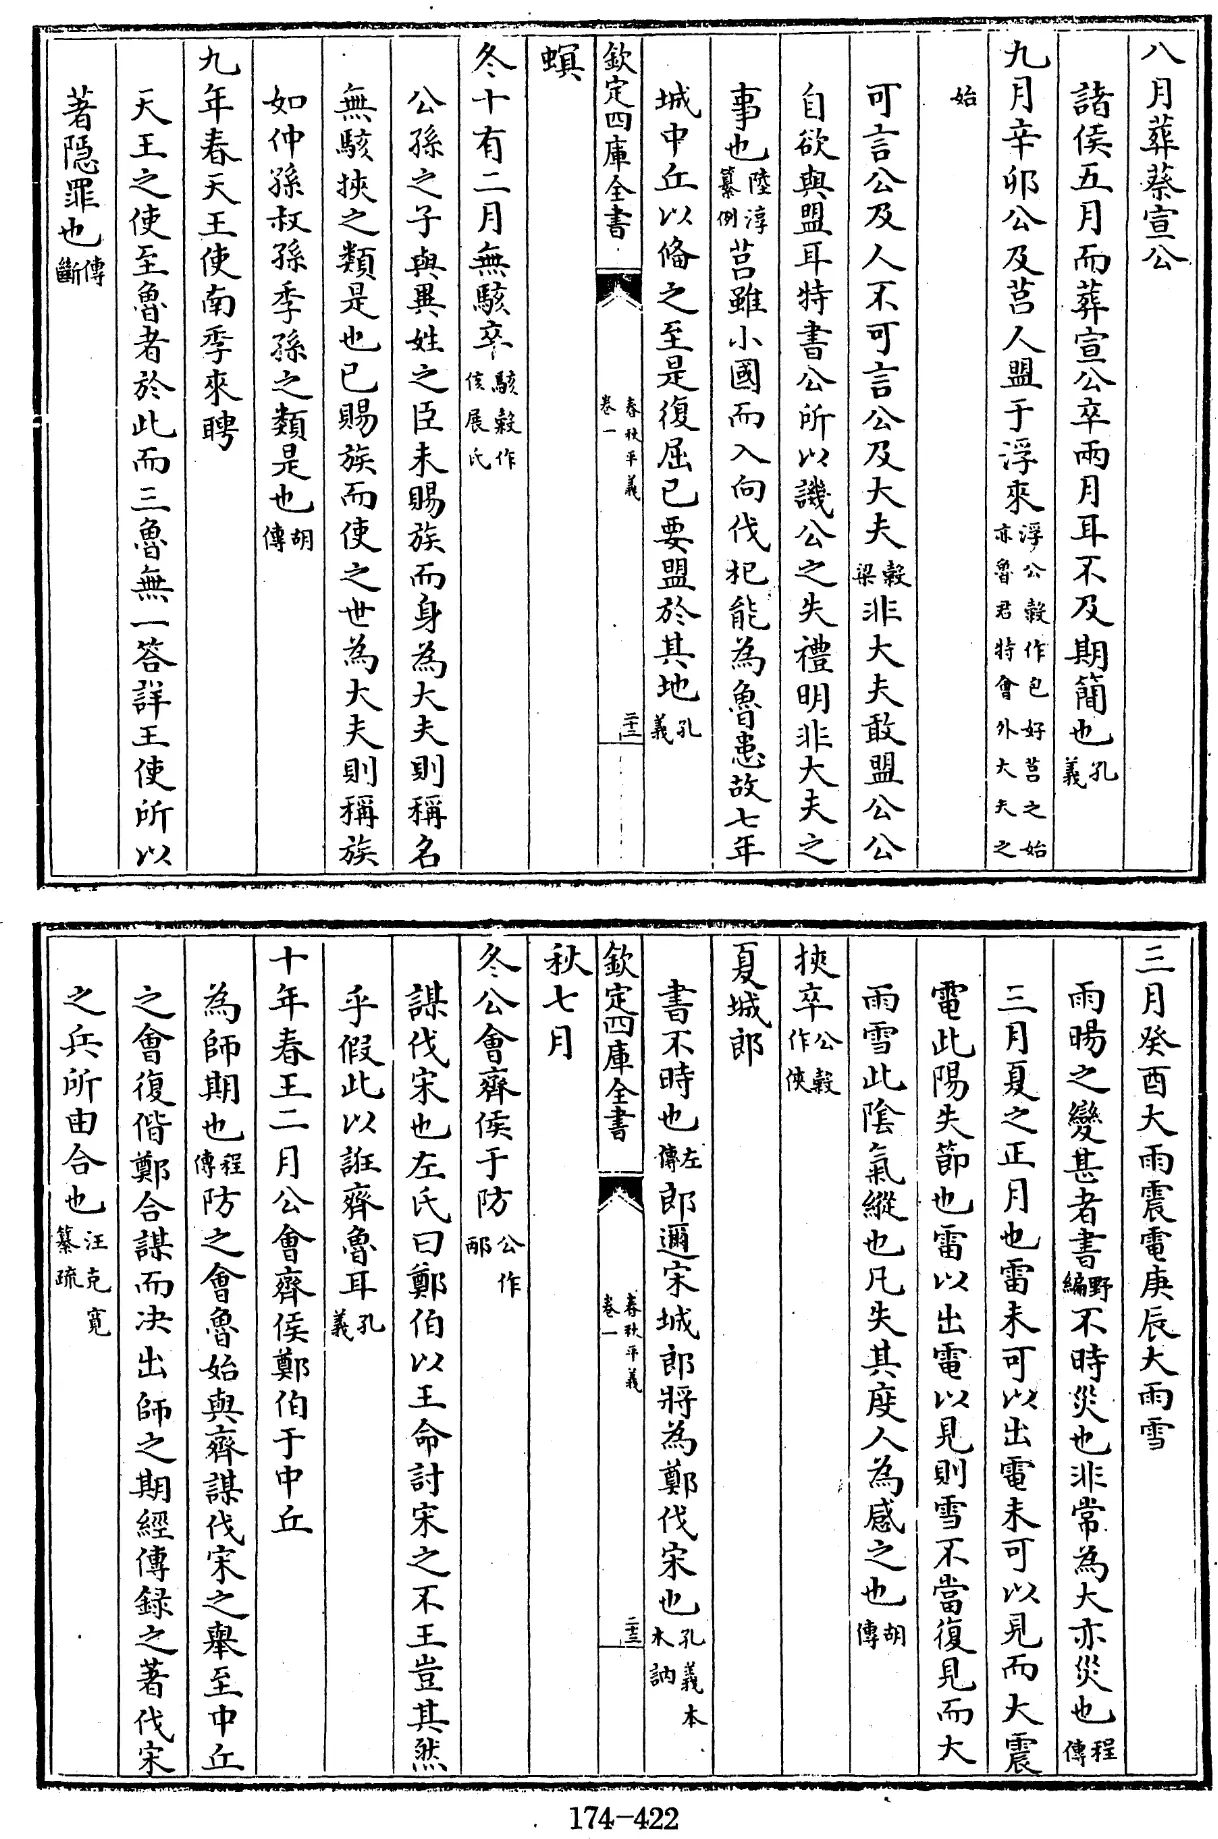 八月葬蔡宣公
諸侯五月而葬宣公卒兩月耳不及期簡也孔義
九月辛卯公及莒人盟于浮來浮公穀作包好莒之始亦魯君特會外大夫之
始
可言公及人不可言公及大夫穀梁非大夫敢盟公公
自欲與盟耳特書公所以譏公之失禮明非大夫之
事也陸淳纂例莒雖小國而入向伐杞能為魯患故七年
城中丘以備之至是復屈已要盟於其地孔義
欽定四庫全書
春秋平義
卷一
二十三
螟
冬十有二月無駭卒駭穀作侅展氏
公孫之子與異姓之臣未賜族而身為大夫則稱名
無駭挾之類是也已賜族而使之世為大夫則稱族
如仲孫叔孫季孫之類是也胡傳
九年春天王使南季來聘
天王之使至魯者於此而三魯無一答詳王使所以
著隱罪也傳斷
三月癸酉大雨震電庚辰大雨雪
雨暘之變甚者書野編不時災也非常為大亦災也程傳
三月夏之正月也雷未可以出電未可以見而大震
電此陽失節也雷以出電以見則雪不當復見而大
雨雪此陰氣縱也凡失其度人為感之也胡傳
挾卒公穀作俠
夏城郎
書不時也左傳郎邇宋城郎將為鄭伐宋也孔義本木訥
欽定四庫全書
春秋平義
卷一
二十三
秋七月
冬公會齊侯于防公作邴
謀伐宋也左氏曰鄭伯以王命討宋之不王豈其然
乎假此以誑齊魯耳孔義
十年春王二月公會齊侯鄭伯于中丘
為師期也程傳防之會魯始與齊謀伐宋之舉至中丘
之會復偕鄭合謀而決出師之期經傳録之著伐宋
之兵所由合也汪克寛纂疏
174-422